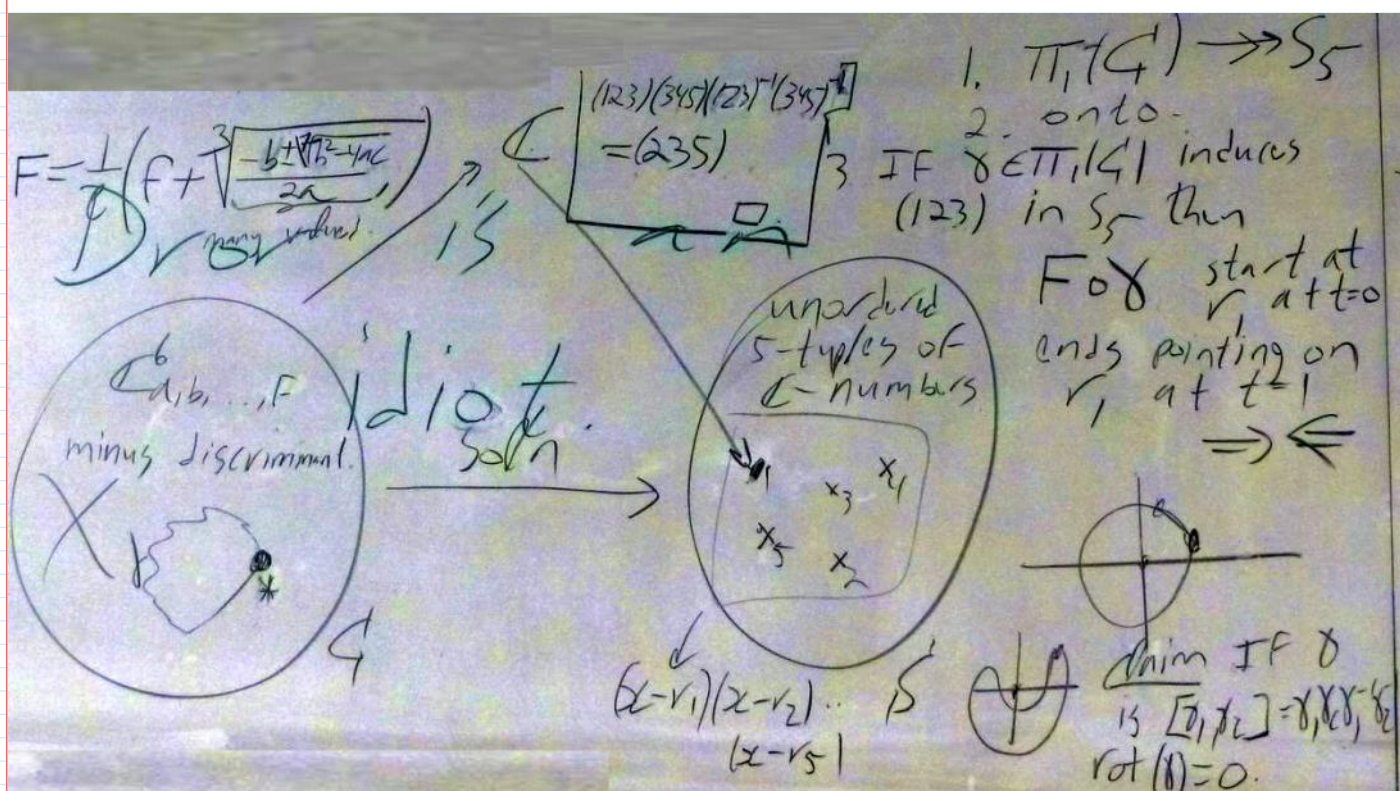 F = 1/D (f + ∛((-b ± √(b²-4ac))/2a))
many values.
ℂ
is
(123)(345)(123)⁻¹(345)⁻¹
=(235)
1. π₁(C) ↠ S₅
2. onto.
3 If γ ∈ π₁(C) induces
(123) in S₅ then
F∘γ start at
r₁ at t=0
ends pointing on
r₁ at t=1
⇒⇐
ℂ⁶ a,b,...,F
minus discriminant.
X
γ
*
C
idiot.
soln
unordered
5-tuples of
ℂ-numbers
1
x3
x4
x5
x2
(x-r₁)(x-r₂)..
(x-r₅)
S
claim If γ
is [γ₁,γ₂]=γ₁γ₂γ₁⁻¹γ₂⁻¹
rot(γ)=0.